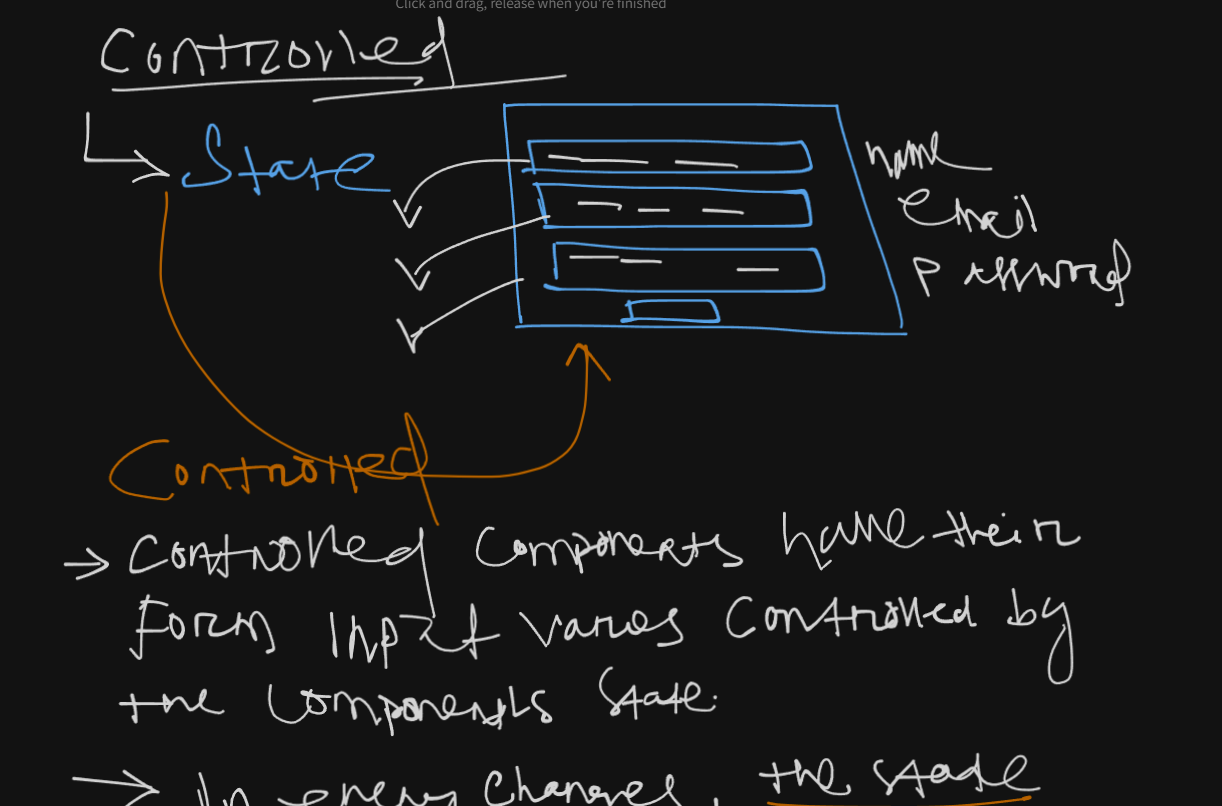 Click and drag, release when you're finished
Controlled
State
name
email
Password
Controlled
→ Controlled Components have their
Form Input values Controlled by
the Components State.
→ In every changes, the state